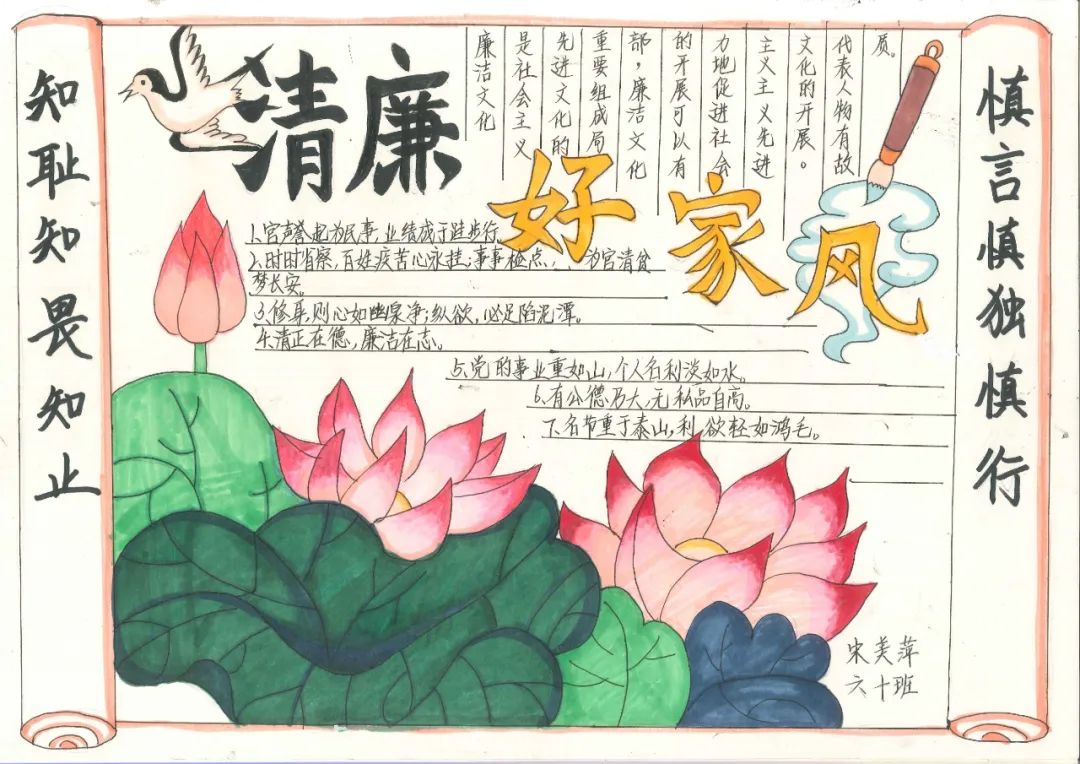 知耻知畏知止
清廉
好家风
廉洁文化
是社会主义
先进文化的
重要组成局
部，廉洁文化
的开展可以有
力地促进社会
主义主义先进
文化的开展。
代表人物有故
质。
1.官声誉起为民事，业绩成于跬步行。
2.时时省察，百姓疾苦心永挂；事事检点、、为官清贫
梦长安。
3.修身，则心如幽泉净；纵欲，必足陷泥潭。
4.清正在德，廉洁在志。
5.党的事业重如山，个人名利淡如水。
6.有公德乃大，无私品自高。
7.名节重于泰山，利欲轻如鸿毛。
慎言慎独慎行
宋美萍
六十班